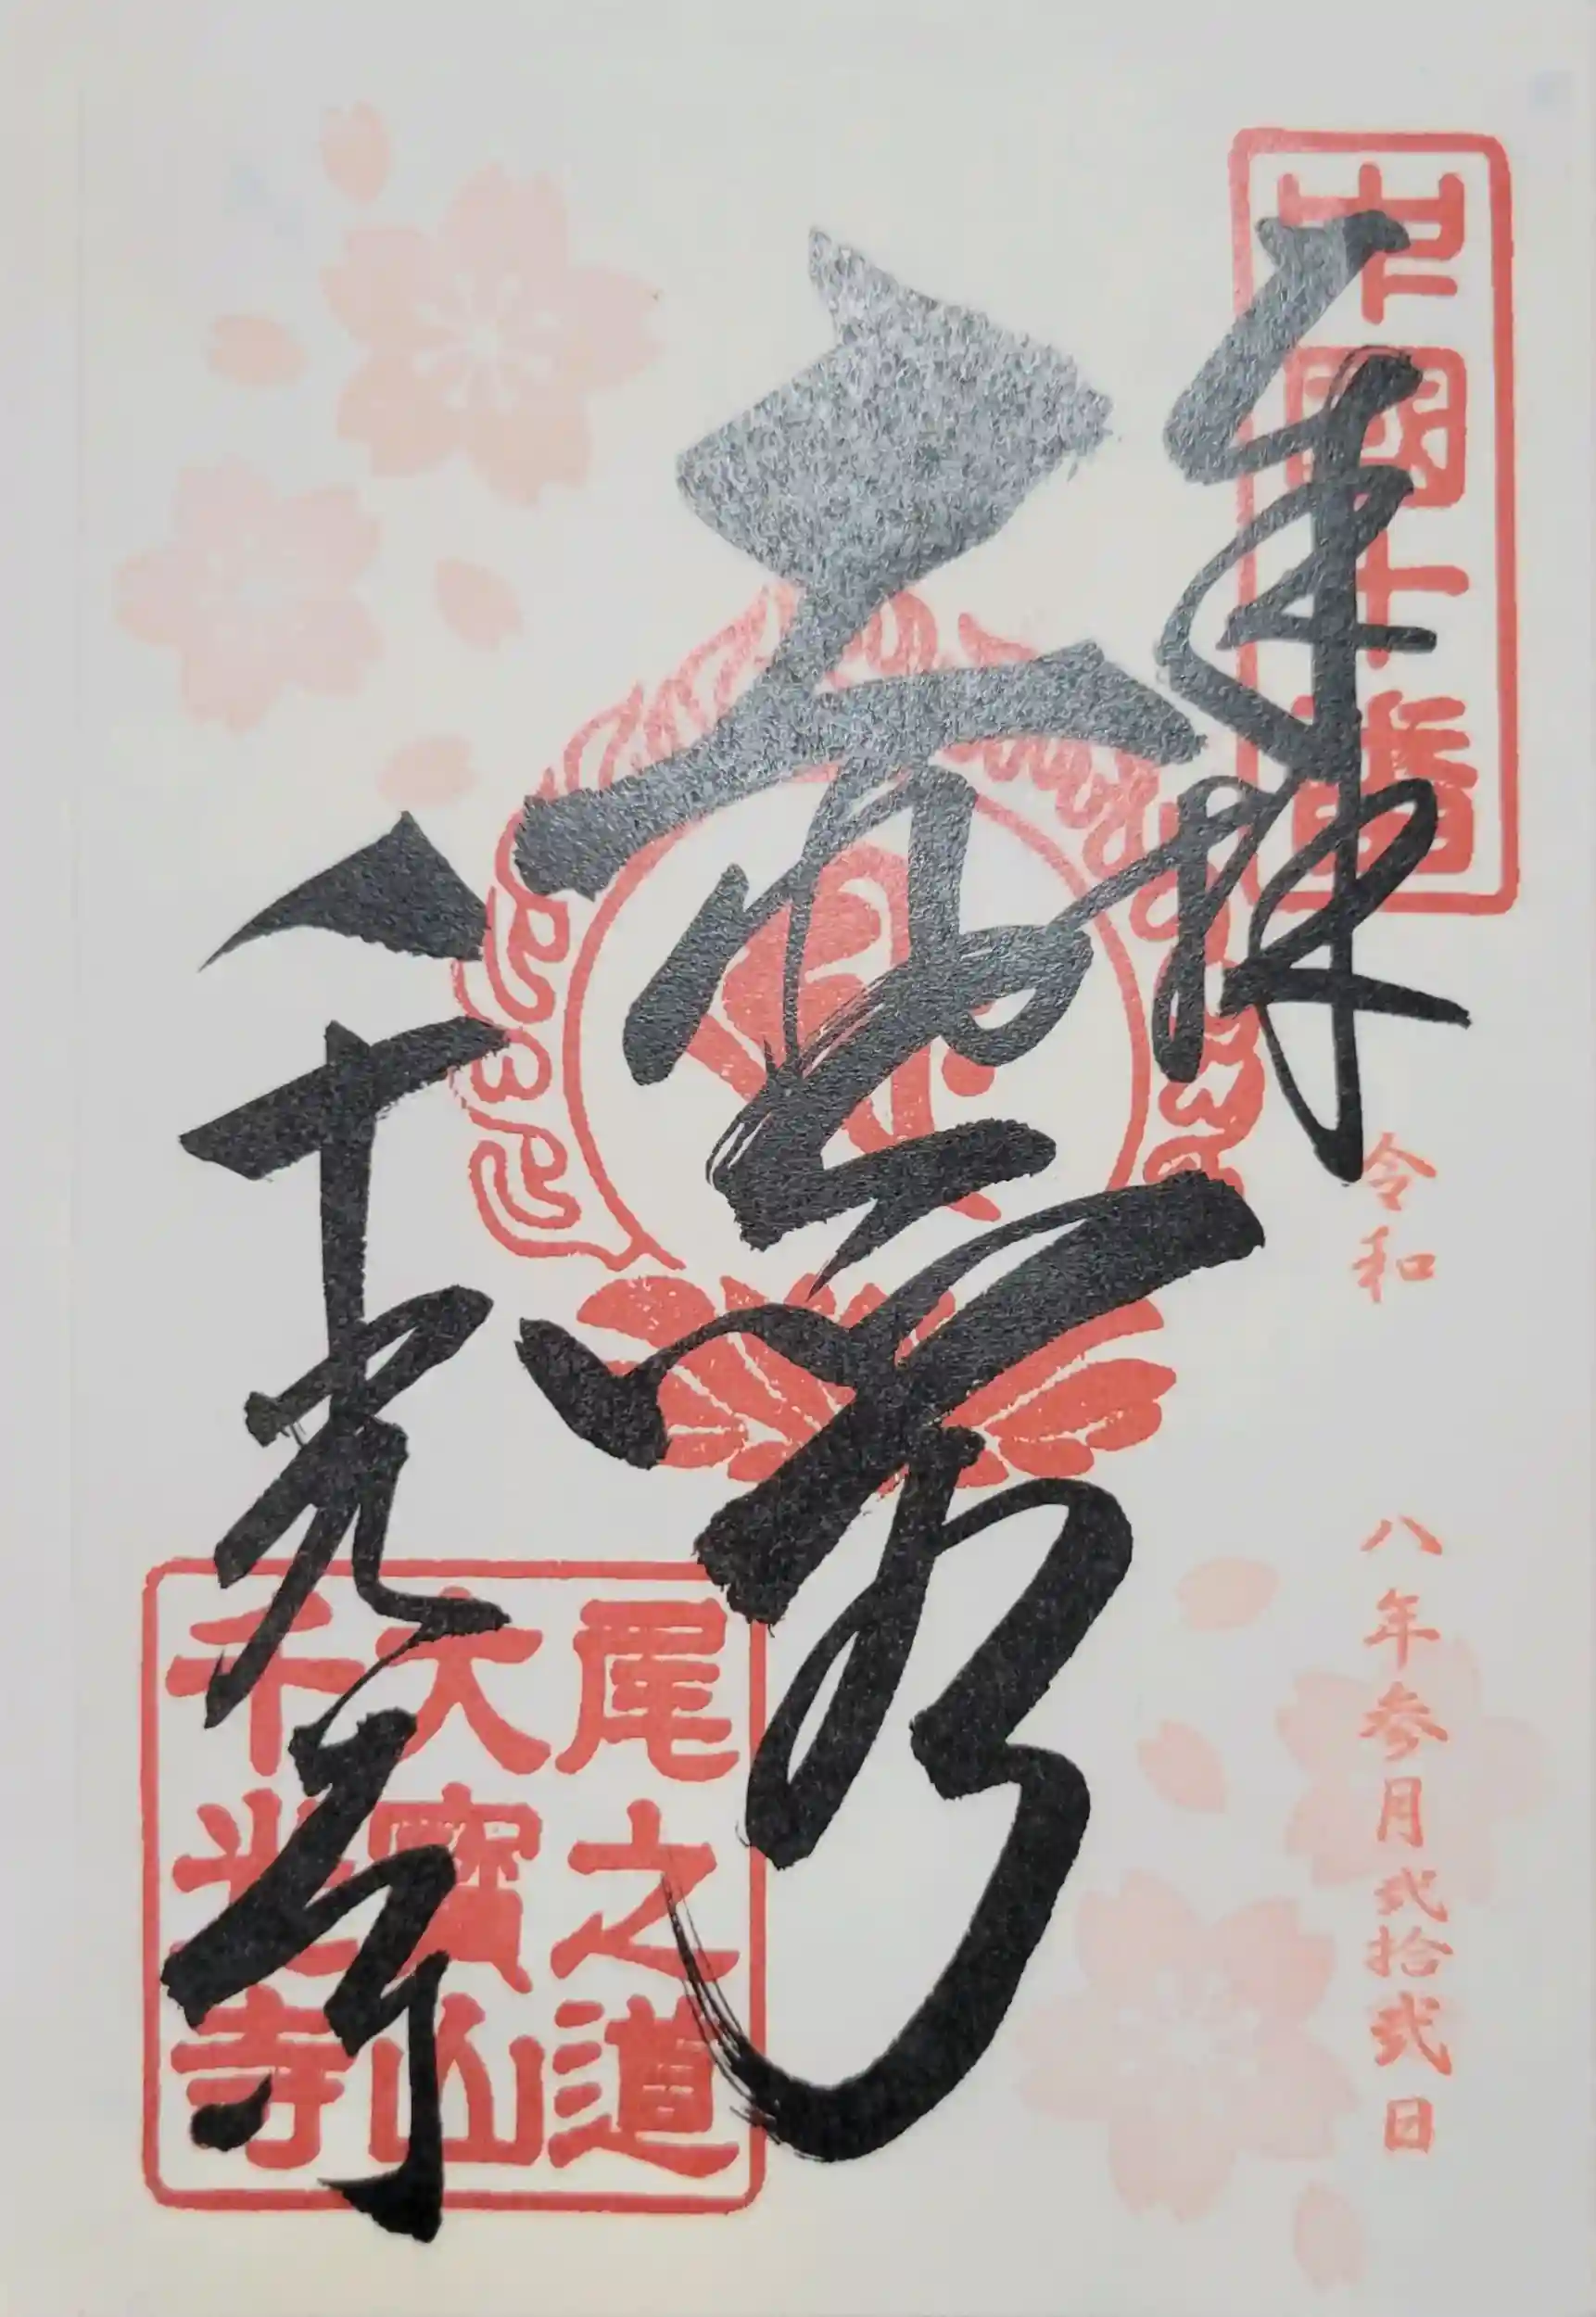 中國十番
奉拝
令和 八年参月弐拾弐日
千光寺
尾之道
大寶山
千光寺